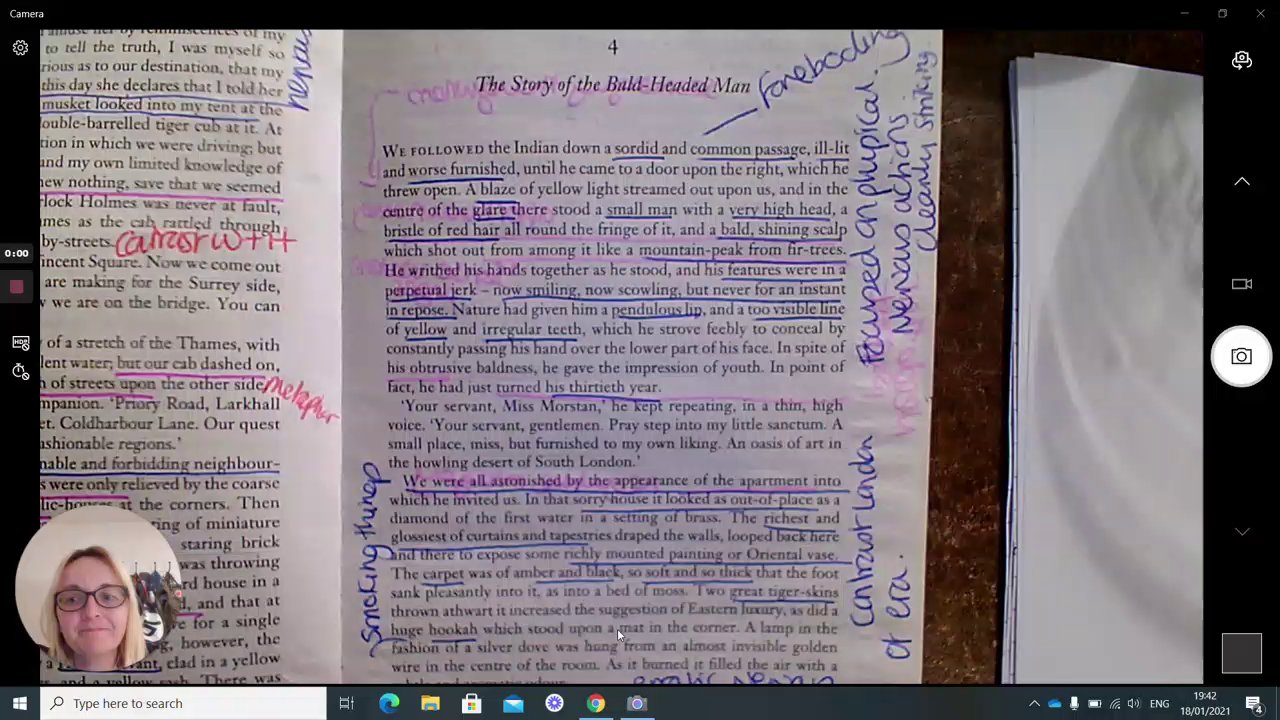 Camera
to tell the truth, I was myself so
rious as to our destination, that my
this day she declares that I told her
musket looked into my tent at the
ouble-barrelled tiger cub at it. At
tion in which we were driving; but
and my own limited knowledge of
ew nothing, save that we seemed
lock Holmes was never at fault,
mes as the cab rattled through
by-streets.
incent Square. Now we come out
are making for the Surrey side,
w we are on the bridge. You can
of a stretch of the Thames, with
lent water; but our cab dashed on,
h of streets upon the other side.
metaphor
mpanion. 'Priory Road, Larkhall
et. Coldharbour Lane. Our quest
ashionable regions.'
nable and forbidding neighbour-
s were only relieved by the coarse
lic-houses at the corners. Then
ing of miniature
staring brick
was throwing
rd house in a
d, and that at
re for a single
however, the
clad in a yellow
There was
0:00
4
The Story of the Bald-Headed Man
Foreboding
WE FOLLOWED the Indian down a sordid and common passage, ill-lit
and worse furnished, until he came to a door upon the right, which he
threw open. A blaze of yellow light streamed out upon us, and in the
centre of the glare there stood a small man with a very high head, a
bristle of red hair all round the fringe of it, and a bald, shining scalp
which shot out from among it like a mountain-peak from fir-trees.
He writhed his hands together as he stood, and his features were in a
perpetual jerk – now smiling, now scowling, but never for an instant
in repose. Nature had given him a pendulous lip, and a too visible line
of yellow and irregular teeth, which he strove feebly to conceal by
constantly passing his hand over the lower part of his face. In spite of
his obtrusive baldness, he gave the impression of youth. In point of
fact, he had just turned his thirtieth year.
'Your servant, Miss Morstan,' he kept repeating, in a thin, high
voice. 'Your servant, gentlemen. Pray step into my little sanctum. A
small place, miss, but furnished to my own liking. An oasis of art in
the howling desert of South London.'
We were all astonished by the appearance of the apartment into
which he invited us. In that sorry house it looked as out-of-place as a
diamond of the first water in a setting of brass. The richest and
glossiest of curtains and tapestries draped the walls, looped back here
and there to expose some richly mounted painting or Oriental vase.
The carpet was of amber and black, so soft and so thick that the foot
sank pleasantly into it, as into a bed of moss. Two great tiger-skins
thrown athwart it increased the suggestion of Eastern luxury, as did a
huge hookah which stood upon a mat in the corner. A lamp in the
fashion of a silver dove was hung from an almost invisible golden
wire in the centre of the room. As it burned it filled the air with a
Nervous actions
clearly striking.
Contrast London
of era.
Smoking
Type here to search
ENG
19:42
18/01/2021
4